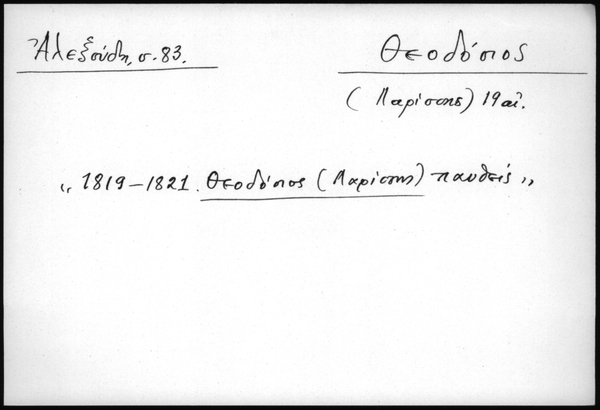 Ἀλεξούδη, σ. 83.
Θεοδόσιος
(Λαρίσσης) 19 αἰ.
„ 1819–1821. Θεοδόσιος (Λαρίσσης) παυθείς „